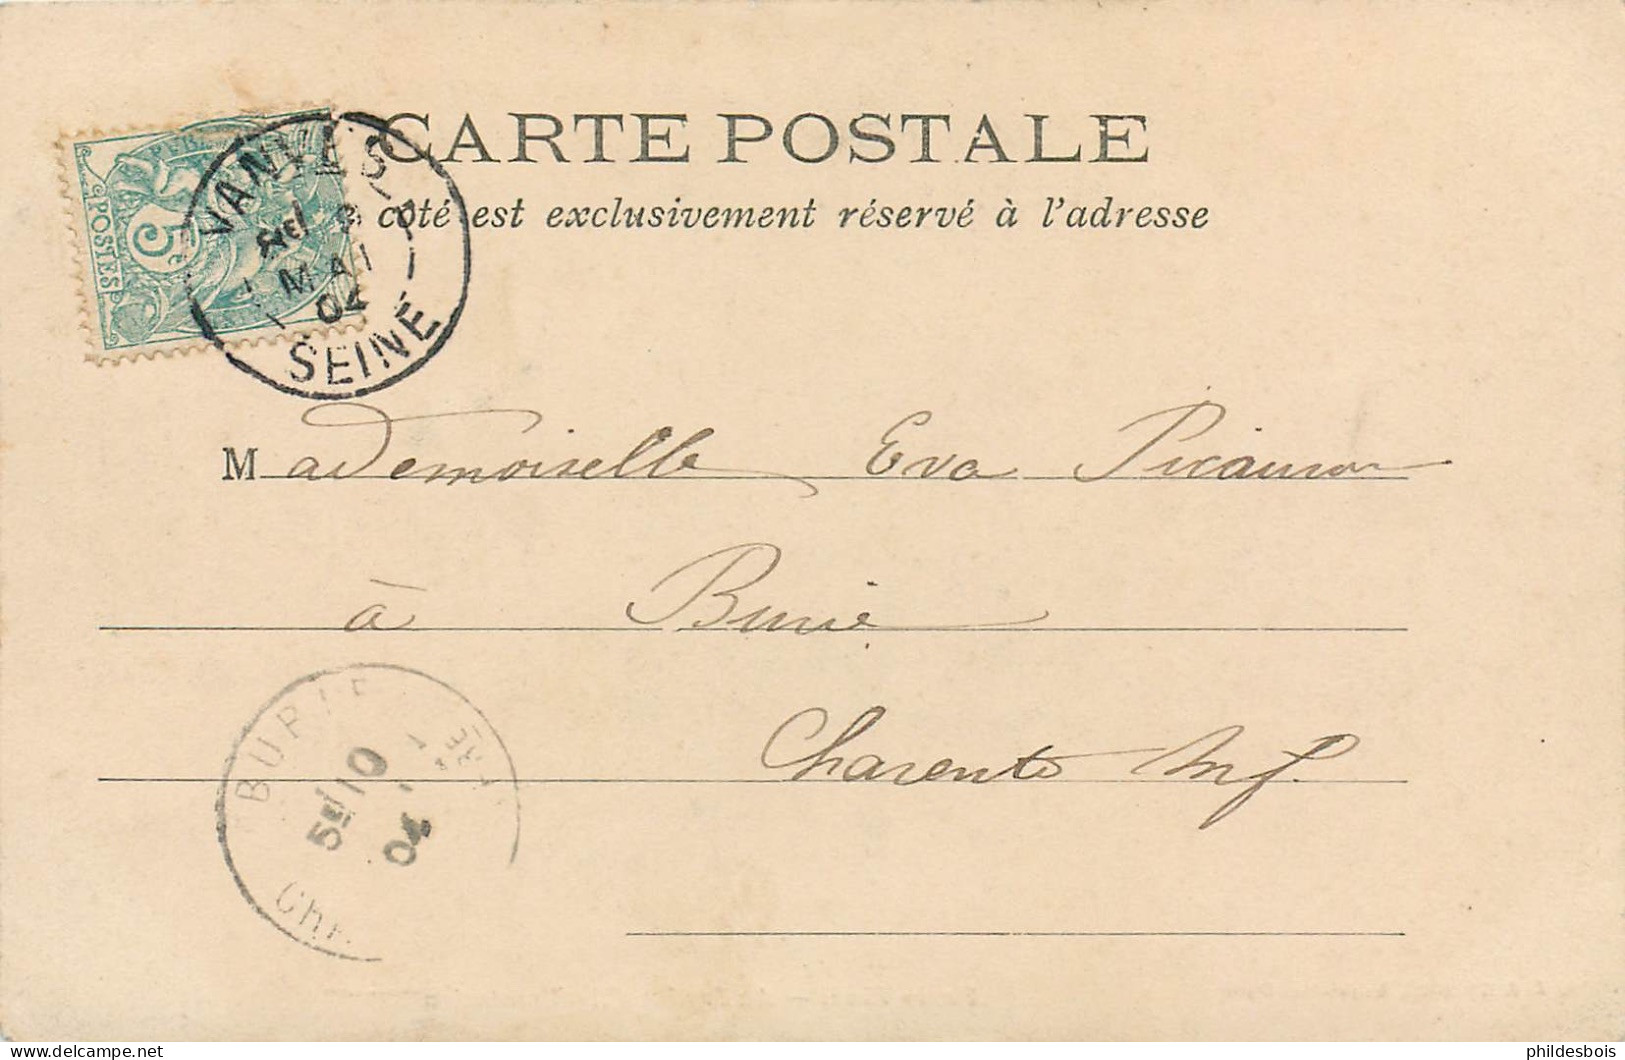 CARTE POSTALE
coté est exclusivement réservé à l'adresse
5c
POSTES
VANVES
MAI
04
SEINE
Mademoiselle Eva
à Burie
Charente Inf.
BURIE
5E 10
04
CHA
delcampe.net
phildesbois